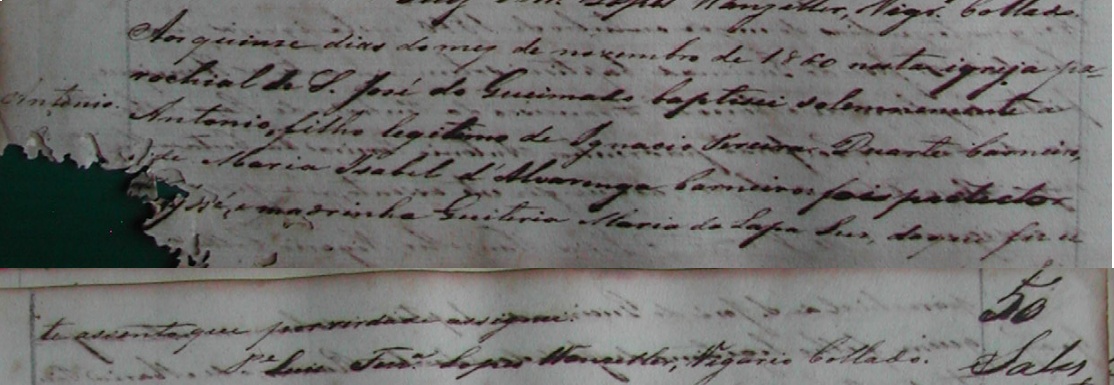 Lopes Wanzeller, Vigrº Collado
Aos quinze dias do mez de novembro de 1860 nesta igreja pa-
rochial de S. José do Queimado baptisei solemnemente a
Antonio.
Antonio, filho legitimo de Ignacio Pereira Duarte Carneiro,
Maria Isabel d'Alvarenga Carneiro: foi protector
José, e madrinha Quiteria Maria da Lapa Luz, do que fiz es
te assento que por verdade assignei.
50
Pe Luis Lopes Wanzeller, Vigario Collado.
Sales